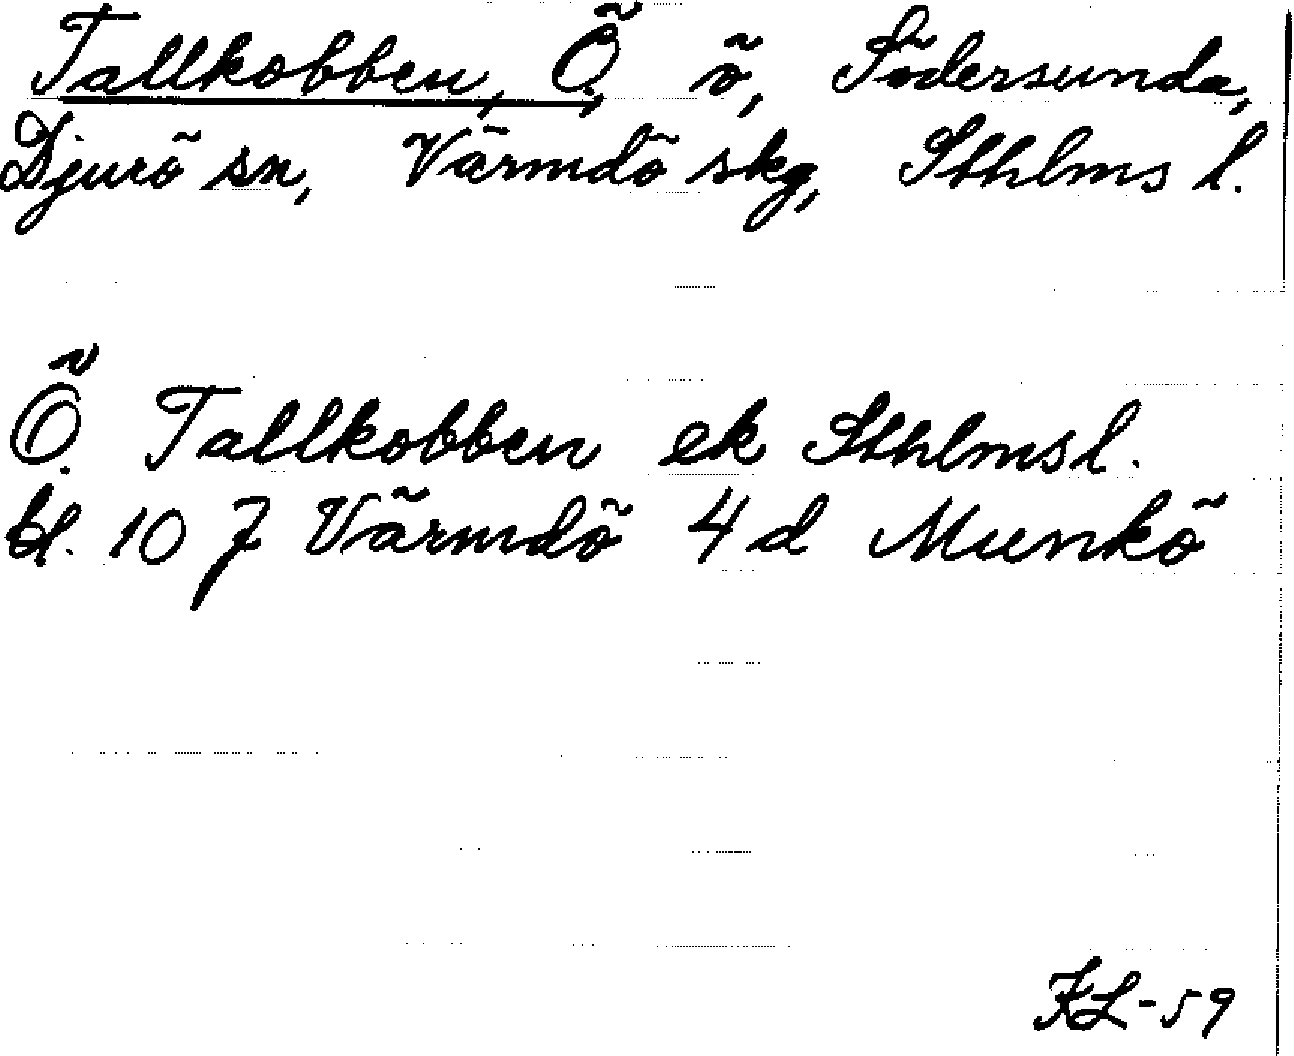 Tallkobben, Ö, ö, Södersunda,
Djurö sn, Värmdö skg, Sthlms l.
Ö. Tallkobben ek Sthlms l.
bl. 107 Värmdö 4d Munkö
KL-59